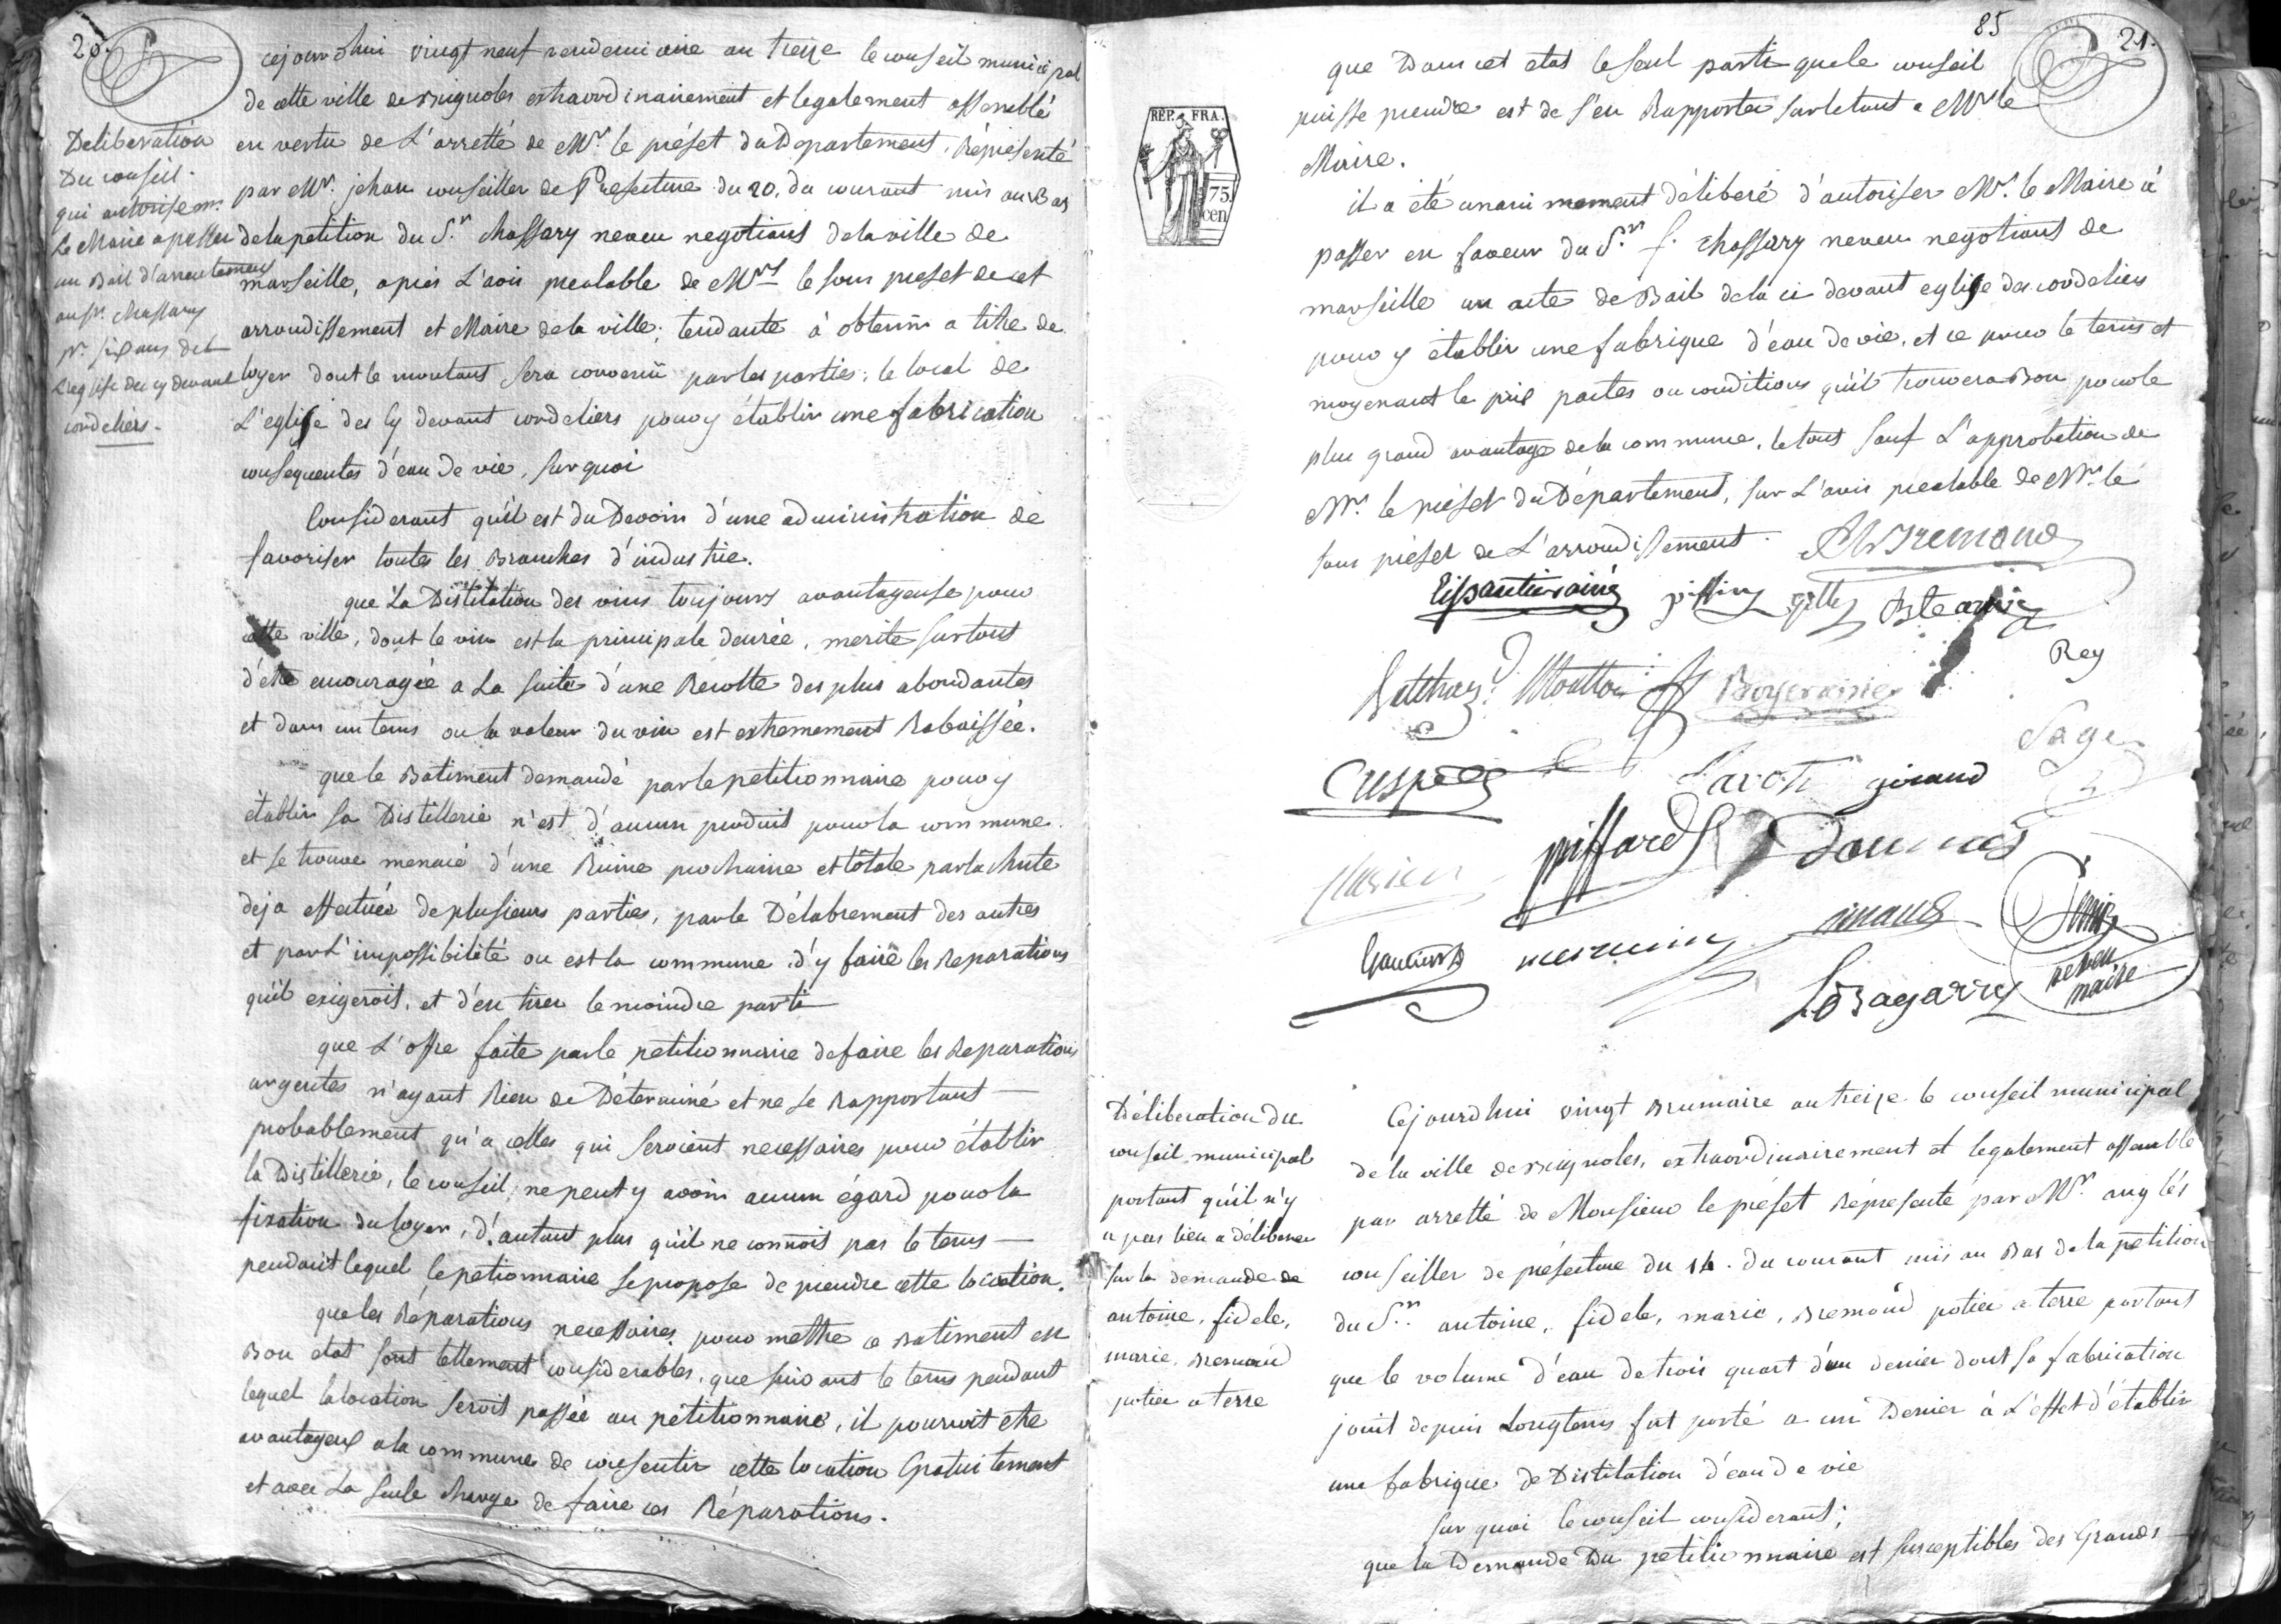 20.
Deliberation
Du conseil.
qui autorise mr.
Le Maire a passer
un Bail d'arrentement
au sr. chassary
pr. six ans de
L'eglise des cy devant
cordeliers.
cejourdhui vingt neuf vendemiaire an treize le conseil municipal
de cette ville de Brignoles extraordinairement et legalement assemblé
en vertu de L'arretté de Mr. le préfet du Departement, Répresenté
par Mr. jehan conseiller de Préfecture du 20. du courant mis au Bas
de la petition du Sr. chassary neveu negotiant de la ville de
marseille, apres L'avis prealable de Mrs le sous prefet de cet
arrondissement et Maire de la ville; tendante à obtenir a titre de
loyer dont le montant sera convenu par les parties; le local de
L'eglise des Cy devant cordeliers pour y établir une fabrication
consequentes d'eau de vie, sur quoi
Considerant qu'il est du Devoir d'une administration de
favoriser toutes les Branches d'industrie.
que La Distilation des vins toujours avantageuse pour
cette ville, dont le vin est la principale denrée, merite surtout
d'etre encouragée a La suite d'une Recolte des plus abondantes
et dans un tems ou la valeur du vin est extremement Rabaissée.
que le Batiment demandé par le petitionnaire pour y
établir sa Distillerie n'est d'aucun produit pour la commune.
et se trouve menacé d'une Ruine prochaine et totale par la chute
deja effectuée de plusieurs parties, par le Délabrement des autres
et par L'impossibilité ou est la commune d'y faire les Reparations
qu'il exigeroit, et d'en tirer le moindre parti
que L'offre faite par le petitionnaire de faire les Reparations
urgentes n'ayant Rien de Déterminé et ne se Rapportant
probablement qu'a celles qui seroient necessaires pour établir
la Distillerie, le conseil ne peut y avoir aucun égard pour la
fixation du loyer, d'autant plus qu'il ne connoit pas le tems
pendant lequel le petionnaire se propose de prendre cette location.
que les Réparations necessaires pour mettre ce Batiment en
Bon etat sont tellement considerables, que suivant le tems pendant
lequel la location seroit passée au pétitionnaire, il pourroit etre
avantageux a la commune de consentir cette location Gratuitement
et avec La seule charge de faire ces Réparations.
85
21.
REP. FRA.
75
cen
que Dans cet etat le seul parti que le conseil
puisse prendre est de s'en Rapporter sur le tout a Mr le
Maire.
il a été unanimement déliberé d'autoriser Mr. le Maire à
passer en faveur du Sr. f. chassary neveu negotiant de
marseille un acte de Bail de la ci devant eglise des cordeliers
pour y établir une fabrique d'eau de vie, et ce pour le tems et
moyenant le prix pactes ou conditions qu'il trouvera Bon pour le
plus grand avantage de la commune. le tout sauf L'approbation de
Mr. le préfet du Département, sur L'avis prealable de Mr. le
sous préfet de L'arrondissement.
Bremond
gilly
Rey
Moutton
Boyer ainé
Sage
Lavoti
giraud
piffard
Daumas
maire
Déliberation du
conseil municipal
portant qu'il n'y
a pas lieu a déliberer
sur la demande de
antoine, fidele,
marie, Bremond
potier a terre
Cejourdhui vingt Brumaire an treize le conseil municipal
de la ville de Brignoles, extraordinairement et legalement assemblé
par arretté de Monsieur le préfet Répresenté par Mr. anglés
conseiller de préfecture du 14. du courant mis au Bas de la petition
du Sr. antoine, fidele, marie, Bremond potier a terre portant
que le volume d'eau de trois quart d'un denier dont sa fabrication
jouit depuis Longtems fut porté a un Denier à L'effet d'établir
une fabrique de Distilation d'eau de vie
sur quoi le conseil considerant;
que la Demande Du petitionnaire est susceptibles des Grands